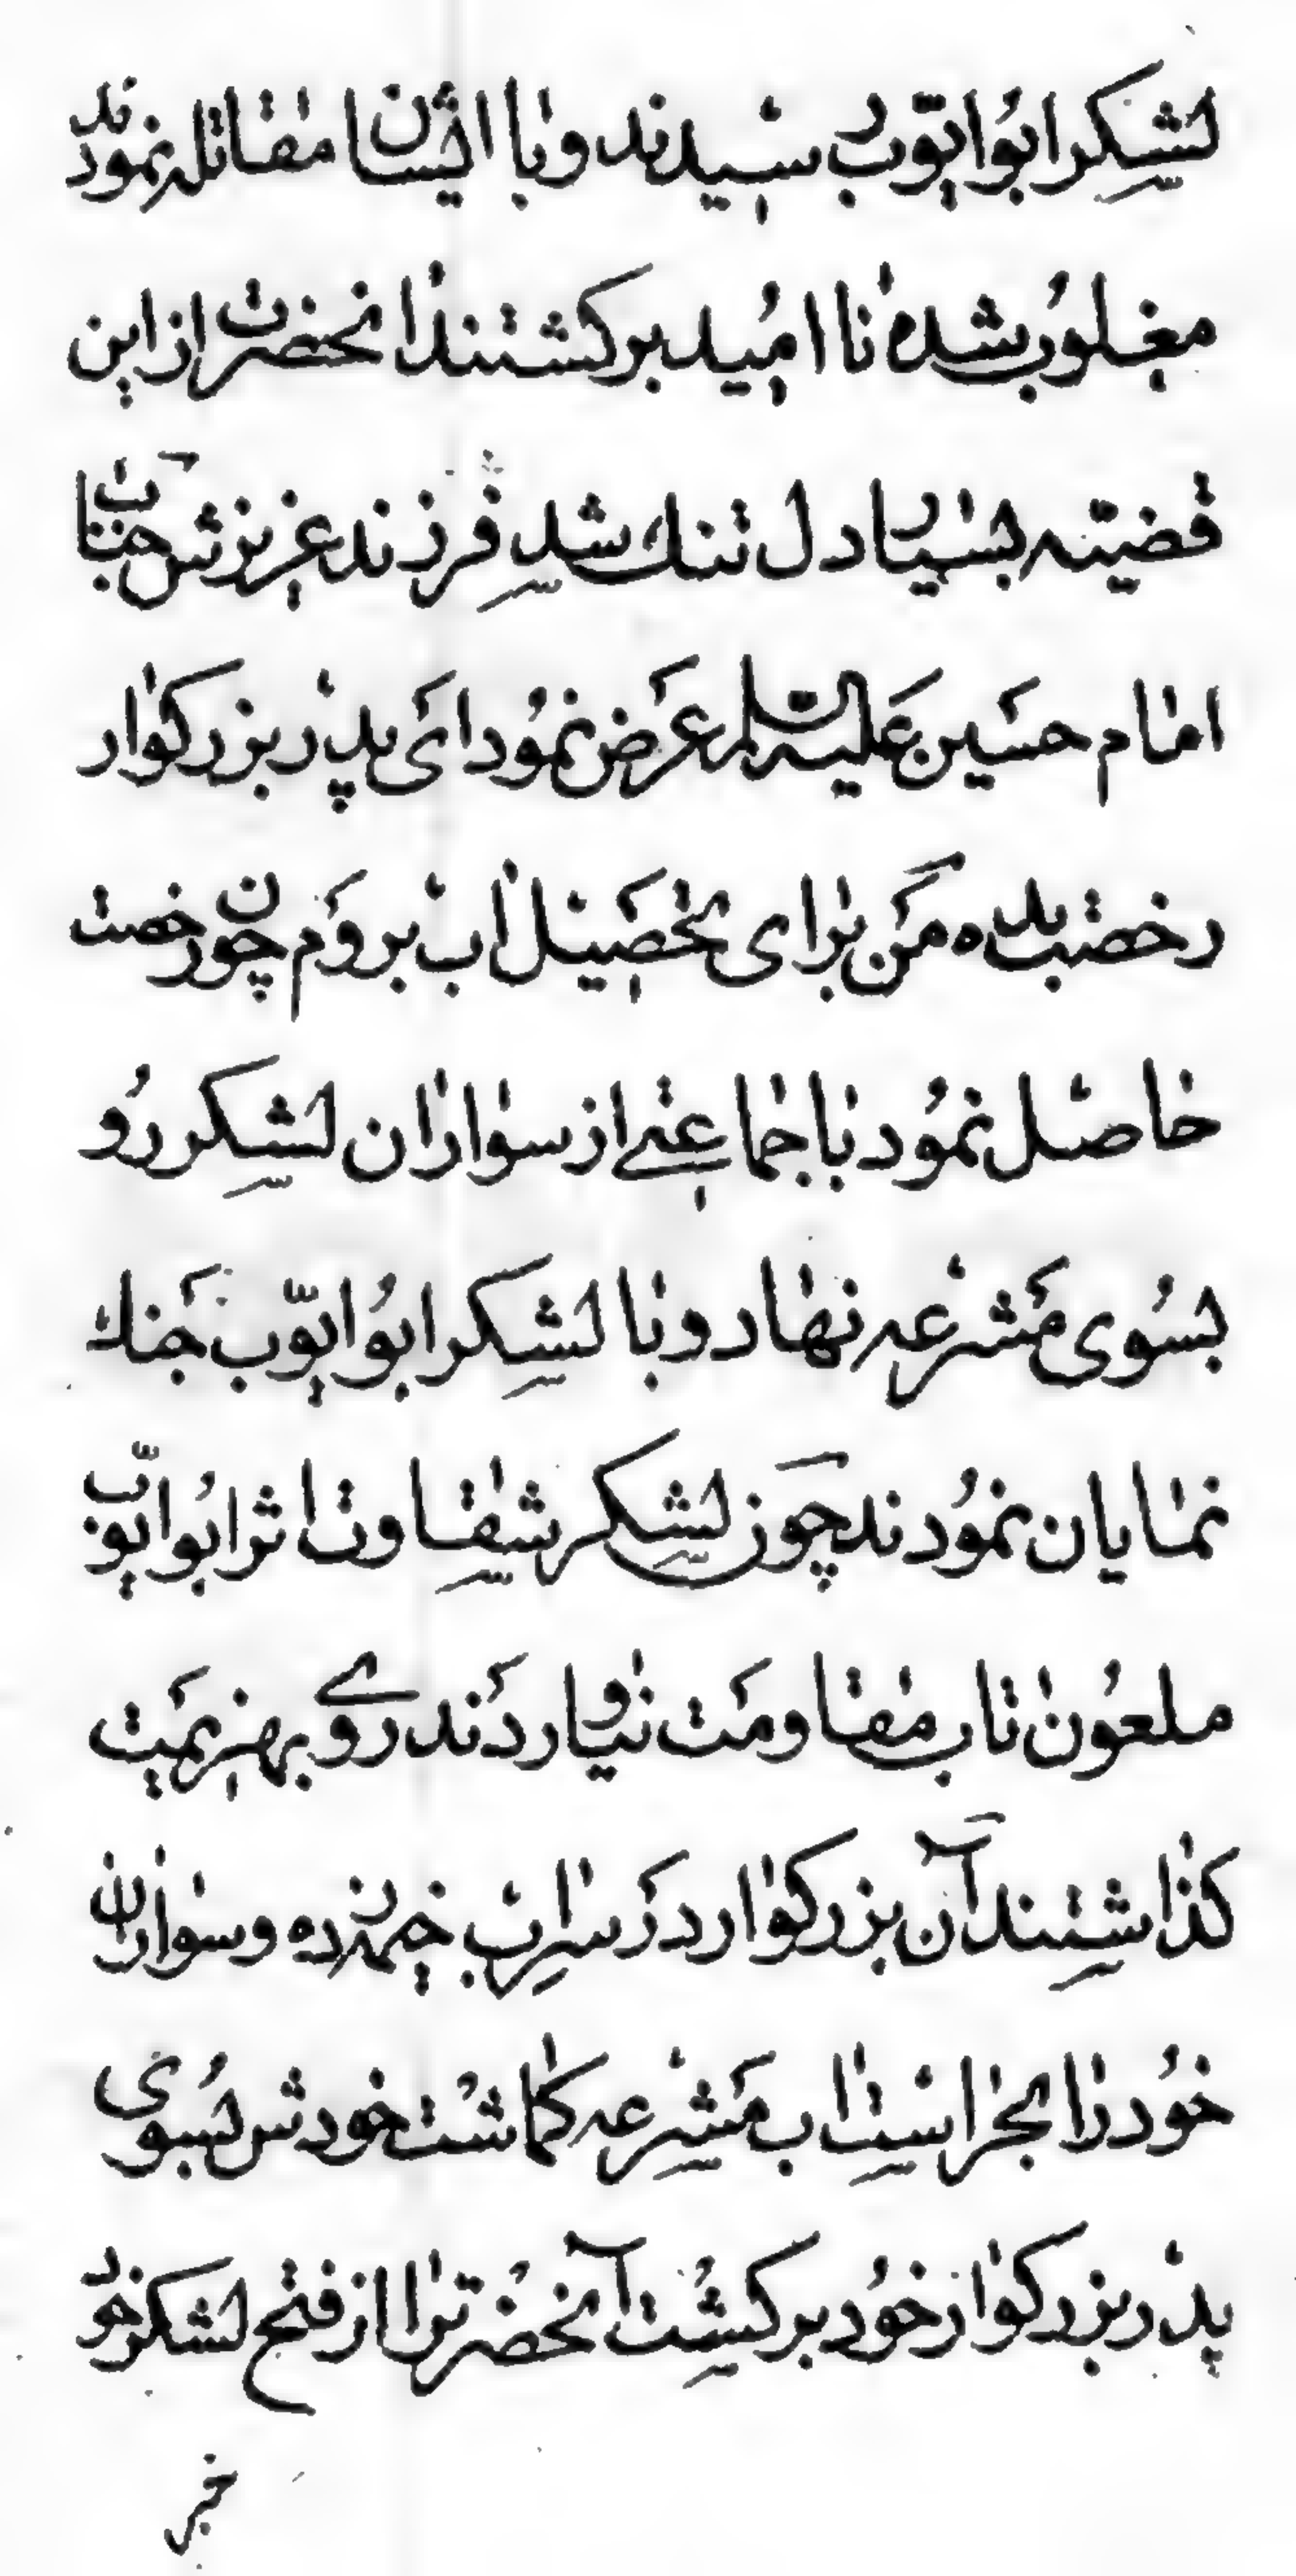 لشکر ابو ایوب رسیدند و با ایشان مقاتله نمودند
مغلوب شده نا امید برکشتند انحضرت از این
قضیّه بسیار دل تنك شد فرزند عزیزش جناب
امام حسین علیه السلام عرض نمود ای پدر بزرکوار
رخصت بده من برای تحصیل اب بروم چون رخصت
حاصل نمود با جماعتی از سواران لشکر رو
بسوی مشرعه نهاد و با لشکر ابو ایّوب جنك
نمایان نمودند چون لشکر شقاوت اثر ابو ایّوب
ملعون تاب مقاومت نیاوردند روی بهزیمت
کذاشتند آن بزرکوار در سر اب خیمه زده و سواران
خود را بحراست اب مشرعه کماشت خودش بسوی
پدر بزرکوار خود برکشت آنحضرترا از فتح لشکر خود
خبر